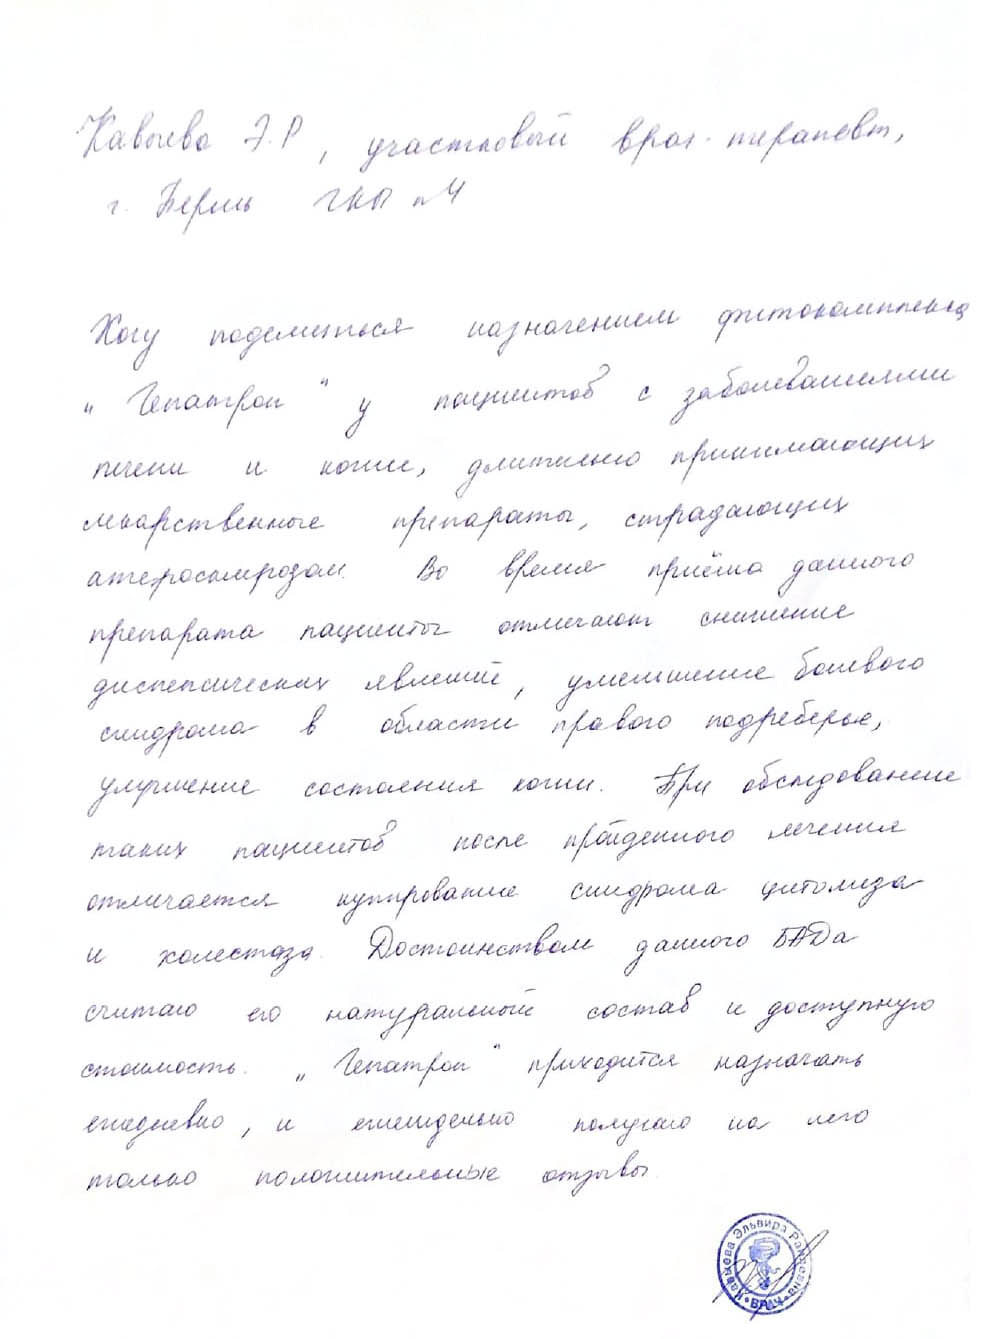 Кавыева Э.Р, участковый врач-терапевт,
г. Пермь ГКП №4
Хочу поделиться назначением фитокомплекса
„Гепатрон" у пациентов с заболеваниями
печени и кожи, длительно принимающих
лекарственные препараты, страдающих
атеросклерозом. Во время приёма данного
препарата пациенты отмечают снижение
диспепсических явлений, уменьшение болевого
синдрома в области правого подреберья,
улучшение состояния кожи. При обследование
таких пациентов после пройденного лечения
отмечается купирование синдрома цитолиза
и холестаза. Достоинством данного БАДа
считаю его натуральный состав и доступную
стоимость. „Гепатрон" приходится назначать
ежедневно, и еженедельно получаю на него
только положительные отзывы.
Кавыева Эльвира
ВРАЧ